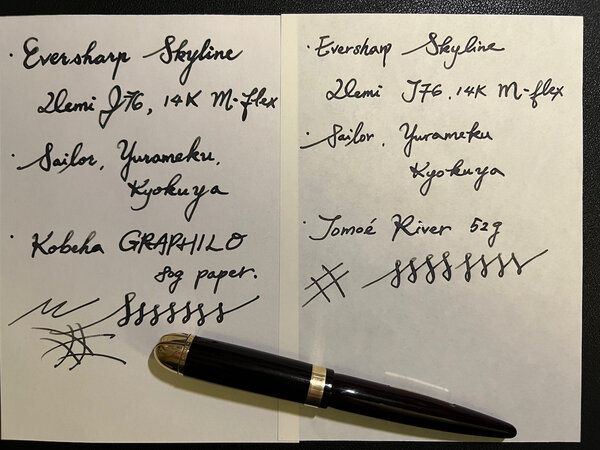 · Eversharp Skyline
Demi J-76, 14K M-flex
· Sailor, Yurameku,
Kyokuya
· Kobeha GRAPHILO
80g paper.
· Eversharp Skyline
Demi J76, 14K M-flex
· Sailor, Yurameku
Kyokuya
· Tomoé River 52g